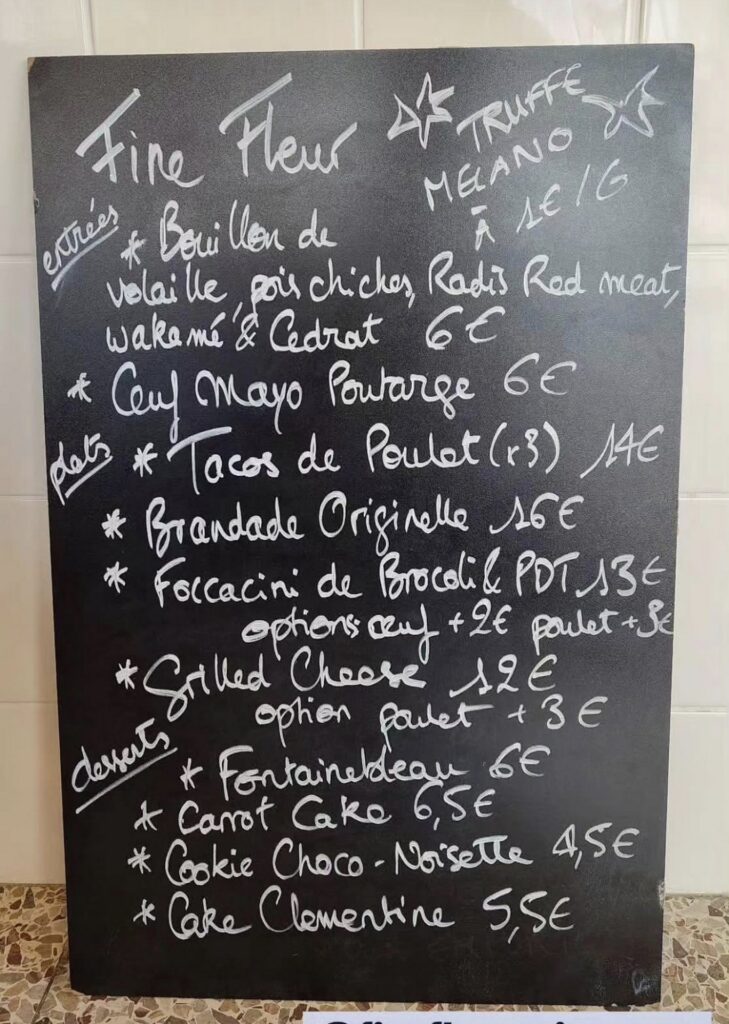 Fine Fleur
TRUFFE
MELANO
À 1€/G
entrées
* Bouillon de
volaille, pois chiches, Radis Red meat,
wakamé & Cedrat 6€
* Oeuf Mayo Poutarge 6€
plats
* Tacos de Poulet (x3) 14€
* Brandade Originelle 16€
* Foccacini de Brocoli & PDT 13€
options œuf +2€ poulet +3€
* Grilled Cheese 12€
option poulet +3€
desserts
* Fontainebleau 6€
* Carrot Cake 6,5€
* Cookie Choco-Noisette 4,5€
* Cake Clementine 5,5€